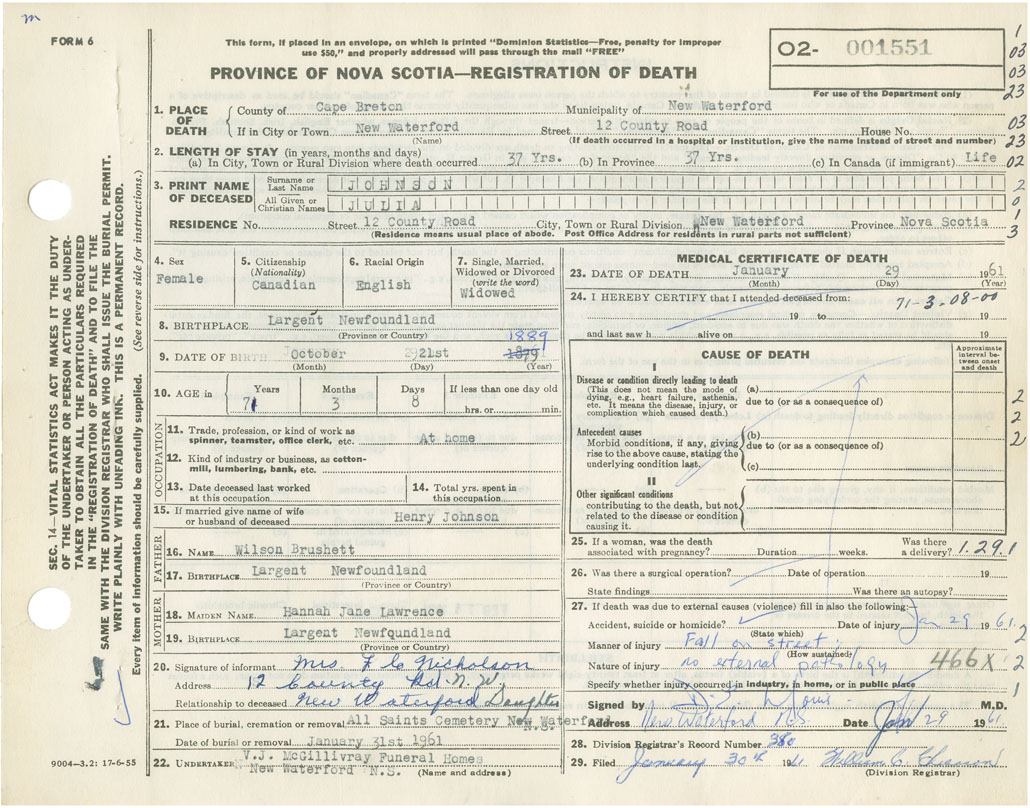 m
FORM 6
This form, if placed in an envelope, on which is printed "Dominion Statistics—Free, penalty for improper
use $50," and properly addressed will pass through the mail "FREE"
O2- 001551
For use of the Department only
PROVINCE OF NOVA SCOTIA—REGISTRATION OF DEATH
1
03
03
23
03
23
02
2
0
1
3
1. PLACE OF DEATH
County of Cape Breton Municipality of New Waterford
If in City or Town New Waterford Street 12 County Road House No.
(Name) (If death occurred in a hospital or institution, give the name instead of street and number)
2. LENGTH OF STAY (in years, months and days)
(a) In City, Town or Rural Division where death occurred 37 Yrs. (b) In Province 37 Yrs. (c) In Canada (if immigrant) Life
3. PRINT NAME OF DECEASED
Surname or Last Name JOHNSON
All Given or Christian Names JULIA
RESIDENCE No. Street 12 County Road City, Town or Rural Division New Waterford Province Nova Scotia
(Residence means usual place of abode. Post Office Address for residents in rural parts not sufficient)
4. Sex
Female
5. Citizenship
(Nationality)
Canadian
6. Racial Origin
English
7. Single, Married,
Widowed or Divorced
(write the word)
Widowed
8. BIRTHPLACE Largent Newfoundland
(Province or Country)
1889
9. DATE OF BIRTH October 21st 1879
(Month) (Day) (Year)
10. AGE in
Years Months Days If less than one day old
71 3 8 hrs. or min.
OCCUPATION
11. Trade, profession, or kind of work as
spinner, teamster, office clerk, etc. At home
12. Kind of industry or business, as cotton-
mill, lumbering, bank, etc.
13. Date deceased last worked
at this occupation
14. Total yrs. spent in
this occupation
15. If married give name of wife
or husband of deceased Henry Johnson
FATHER
16. NAME Wilson Brushett
17. BIRTHPLACE Largent Newfoundland
(Province or Country)
MOTHER
18. MAIDEN NAME Hannah Jane Lawrence
19. BIRTHPLACE Largent Newfoundland
(Province or Country)
20. Signature of informant Mrs. F C Nicholson
Address 12 County Rd N.W.
Relationship to deceased New Waterford Daughter
21. Place of burial, cremation or removal All Saints Cemetery New Waterford
N.S.
Date of burial or removal January 31st 1961
22. UNDERTAKER V.J. McGillivray Funeral Homes
New Waterford N.S. (Name and address)
MEDICAL CERTIFICATE OF DEATH
23. DATE OF DEATH January 29 1961
(Month) (Day) (Year)
24. I HEREBY CERTIFY that I attended deceased from: 71-3-08-00
19 to 19
and last saw h alive on 19
CAUSE OF DEATH
Approximate
interval be-
tween onset
and death
I
Disease or condition directly leading to death
(This does not mean the mode of
dying, e.g., heart failure, asthenia,
etc. It means the disease, injury, or
complication which caused death.)
(a)
due to (or as a consequence of)
Antecedent causes
Morbid conditions, if any, giving
rise to the above cause, stating the
underlying condition last.
(b)
due to (or as a consequence of)
(c)
II
Other significant conditions
contributing to the death, but not
related to the disease or condition
causing it.
2
2
2
25. If a woman, was the death
associated with pregnancy? Duration weeks. Was there
a delivery? 1.29.1
26. Was there a surgical operation? Date of operation 19
State findings Was there an autopsy?
27. If death was due to external causes (violence) fill in also the following:
Accident, suicide or homicide? Date of injury Jan 29 1961.
(State which)
Manner of injury Fall on street; 2
(How sustained)
Nature of injury no external pathology 466X 2
Specify whether injury occurred in industry, in home, or in public place 1
Signed by M.D.
Address New Waterford Date Jan 29 1961
28. Division Registrar's Record Number 380
29. Filed January 30th 1961 William C. Chiasson
(Division Registrar)
SEC. 14—VITAL STATISTICS ACT MAKES IT THE DUTY
OF THE UNDERTAKER OR PERSON ACTING AS UNDER-
TAKER TO OBTAIN ALL THE PARTICULARS REQUIRED
IN THE "REGISTRATION OF DEATH" AND TO FILE THE
SAME WITH THE DIVISION REGISTRAR WHO SHALL ISSUE THE BURIAL PERMIT.
WRITE PLAINLY WITH UNFADING INK. THIS IS A PERMANENT RECORD.
Every item of information should be carefully supplied. (See reverse side for instructions.)
9004—3.2: 17-6-55